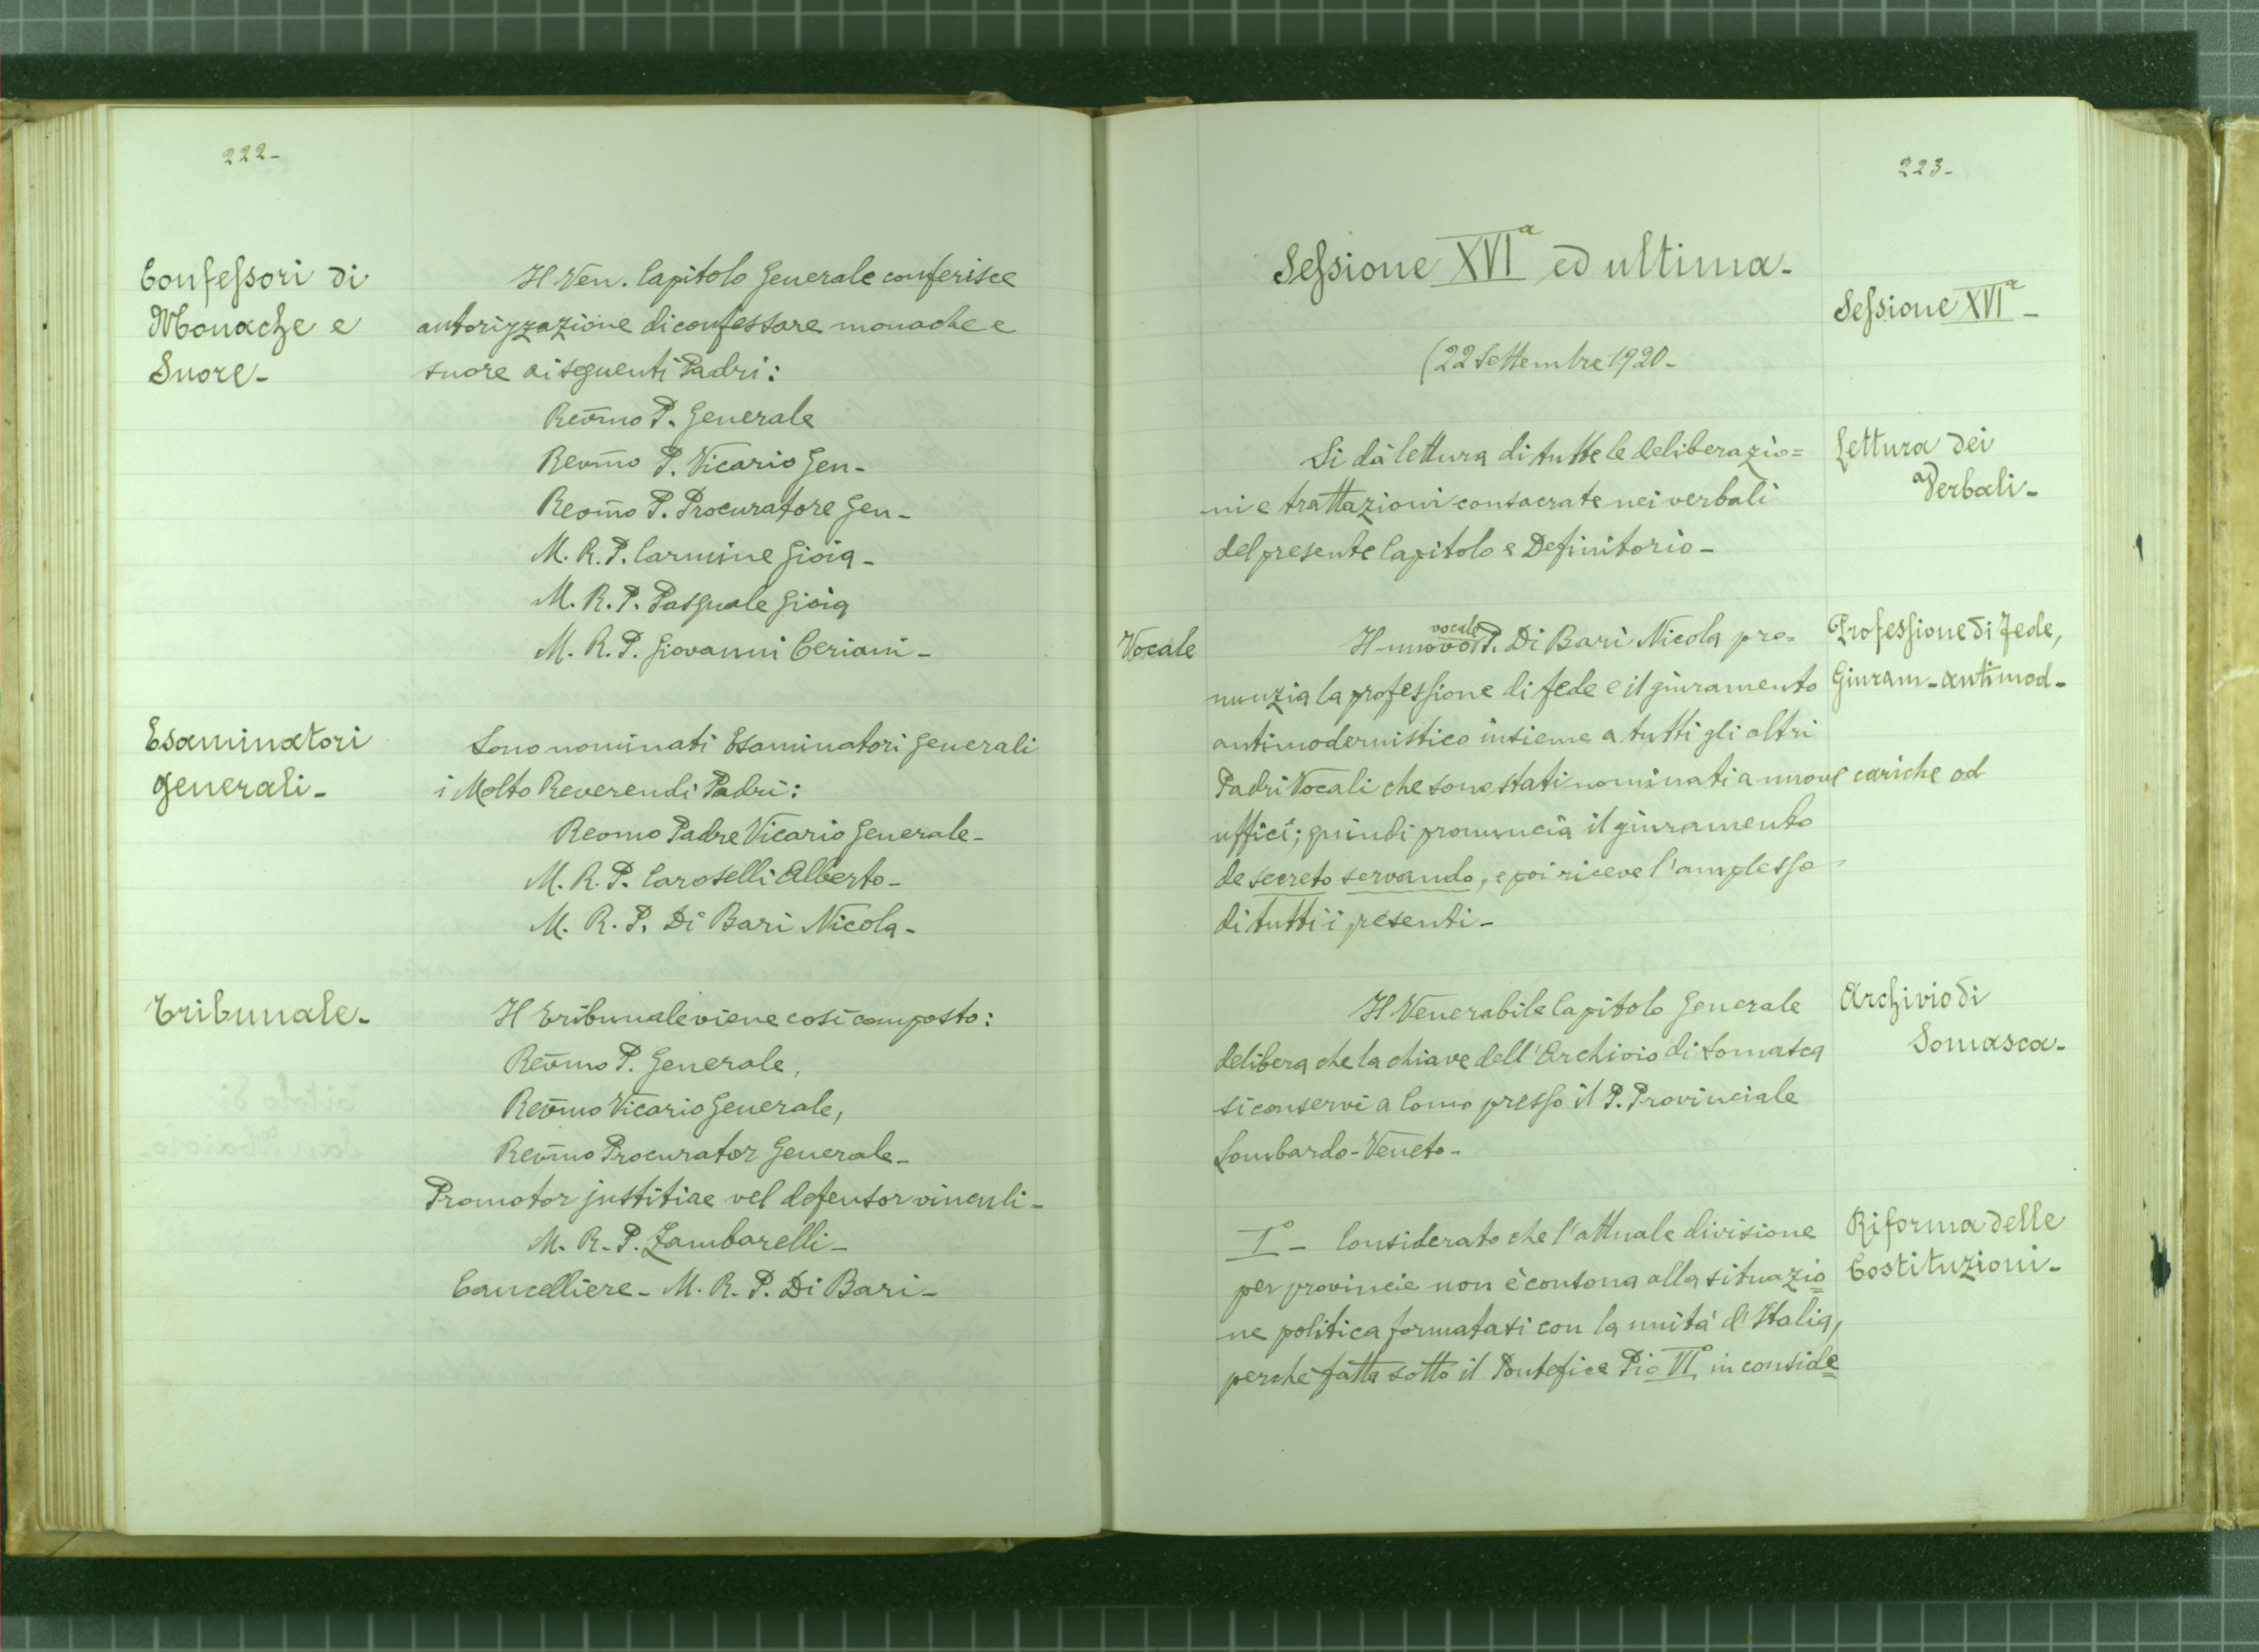 222-
Confessori di
Monache e
Suore-
Il Ven. Capitolo Generale conferisce
autorizzazione di confessare monache e
suore ai seguenti Padri:
Revmo P. Generale
Revmo P. Vicario Gen-
Revmo P. Procuratore Gen-
M. R. P. Carmine Gioia-
M. R. P. Pasquale Gioia
M. R. P. Giovanni Ceriani-
Esaminatori
generali-
Sono nominati Esaminatori Generali
i Molto Reverendi Padri:
Revmo Padre Vicario Generale-
M. R. P. Caroselli Alberto-
M. R. P. Di Bari Nicola-
Tribunale-
Il tribunale viene così composto:
Revmo P. Generale,
Revmo Vicario Generale,
Revmo Procurator Generale-
Promotor justitiae vel defensor vinculi-
M. R. P. Zambarelli-
Cancelliere- M. R. P. Di Bari-
223-
Sessione XVIa ed ultima-
Sessione XVIa-
(22 Settembre 1920-
Si dà lettura di tutte le deliberazio=
ni e trattazioni consacrate nei verbali
del presente Capitolo e Definitorio-
Lettura dei
Verbali-
Vocale
Il nuovo vocale P. Di Bari Nicola pro=
nunzia la professione di fede e il giuramento
antimodernistico insieme a tutti gli altri
Padri Vocali che sono stati nominati a nuove cariche od
uffici; quindi pronuncia il giuramento
de secreto servando, e poi riceve l'amplesso
di tutti i presenti-
Professione di Fede,
Giuram-antimod-
Il Venerabile Capitolo Generale
delibera che la chiave dell'Archivio di Somasca
si conservi a Como presso il P. Provinciale
Lombardo-Veneto-
Archivio di
Somasca-
I°- Considerato che l'attuale divisione
per provincie non è consona alla situazio=
ne politica formatasi con la unità d'Italia,
perchè fatta sotto il Pontefice Pio VI° in conside=
Riforma delle
Costituzioni-